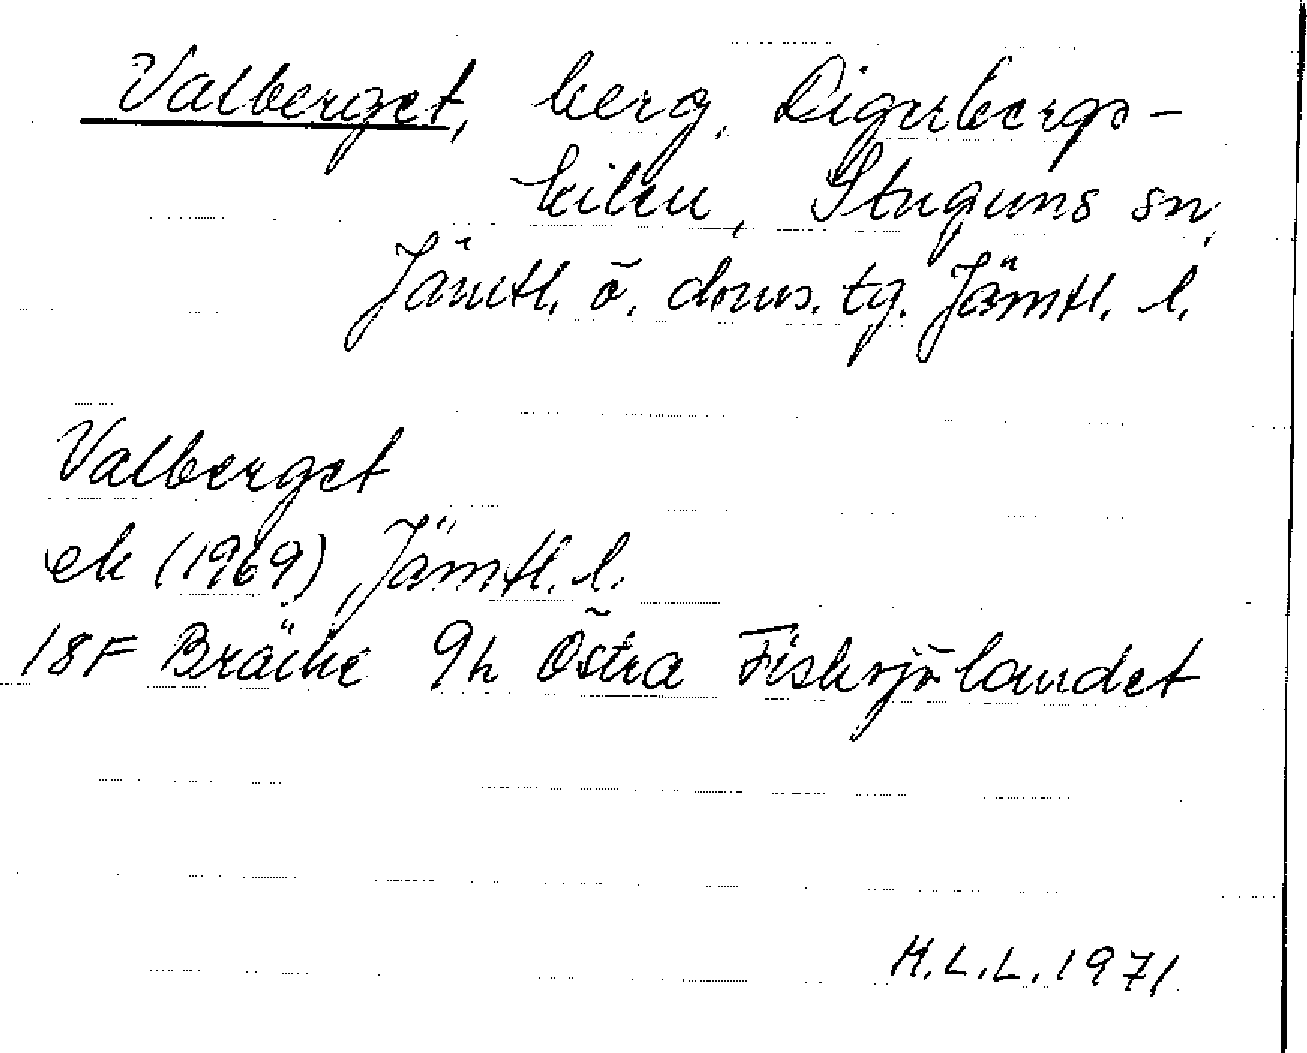 Valberget, berg, Digerbergs-
kilen, Stuguns sn,
Jämtl. ö. doms. tg. Jämtl. l.
Valberget
ek (1969), Jämtl. l.
18F Bräcke 9h Östra Fisksjölandet
H.L.L. 1971